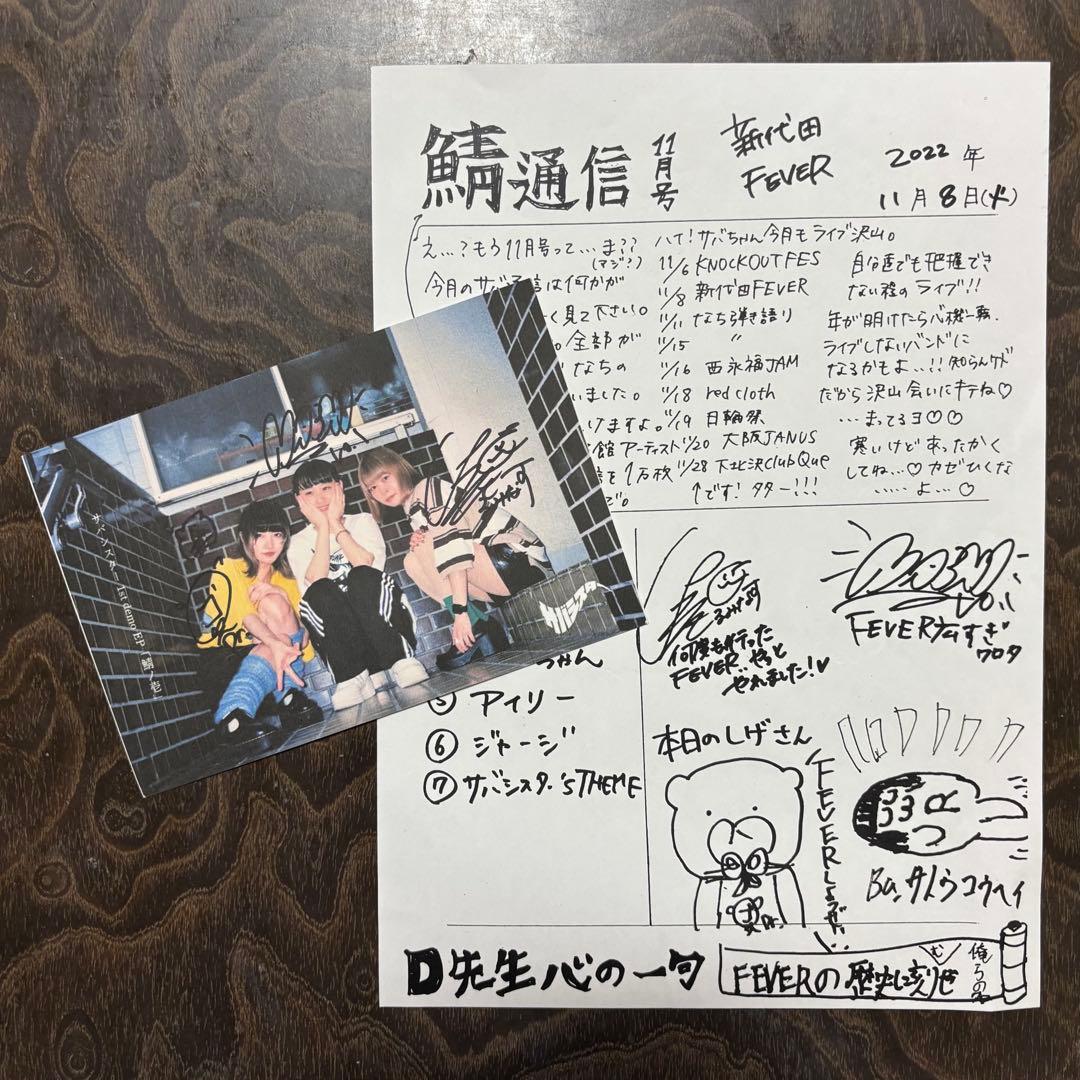 鯖通信
11月号
新代田
FEVER
2022年
11月8日(火)
え…?もう11月号って…ま??
(マジ?)
今月のサバ通信は何かが
く見て下さい。
全部が
なちの
いました。
けますよ。
館アーティスト
を1万枚
で。
ハイ!サバちゃん今月もライブ沢山。
11/6 KNOCKOUT FES
11/8 新代田FEVER
11/11 なち弾き語り
11/15 〃
11/16 西永福JAM
11/18 red cloth
11/19 日輪祭
11/20 大阪JANUS
11/28 下北沢Club Que
↑です!タター!!!
自分達でも把握でき
ない程のライブ!!
年が明けたら心機一転、
ライブしないバンドに
なるかもよ…!!知らんケド
だから沢山会いにキテね♡
…まってるヨ♡♡
寒いけどあったかく
してね…♡カゼひくな
……よ…♡
サバシスター 1st demo EP「鯖ノ壱」
サバシスター
るみなす
Vo.
つかん
⑤ アイリー
⑥ ジャージ
⑦ サバシスター'S THEME
るみなす
何度も行った
FEVER、やっと
やれました!♡
Vo.
FEVER広すぎ
ワロタ
本日のしげさん
Ba.サトウコウヘイ
D先生心の一句
FEVERの歴史に刻りせ
む
俺らの名